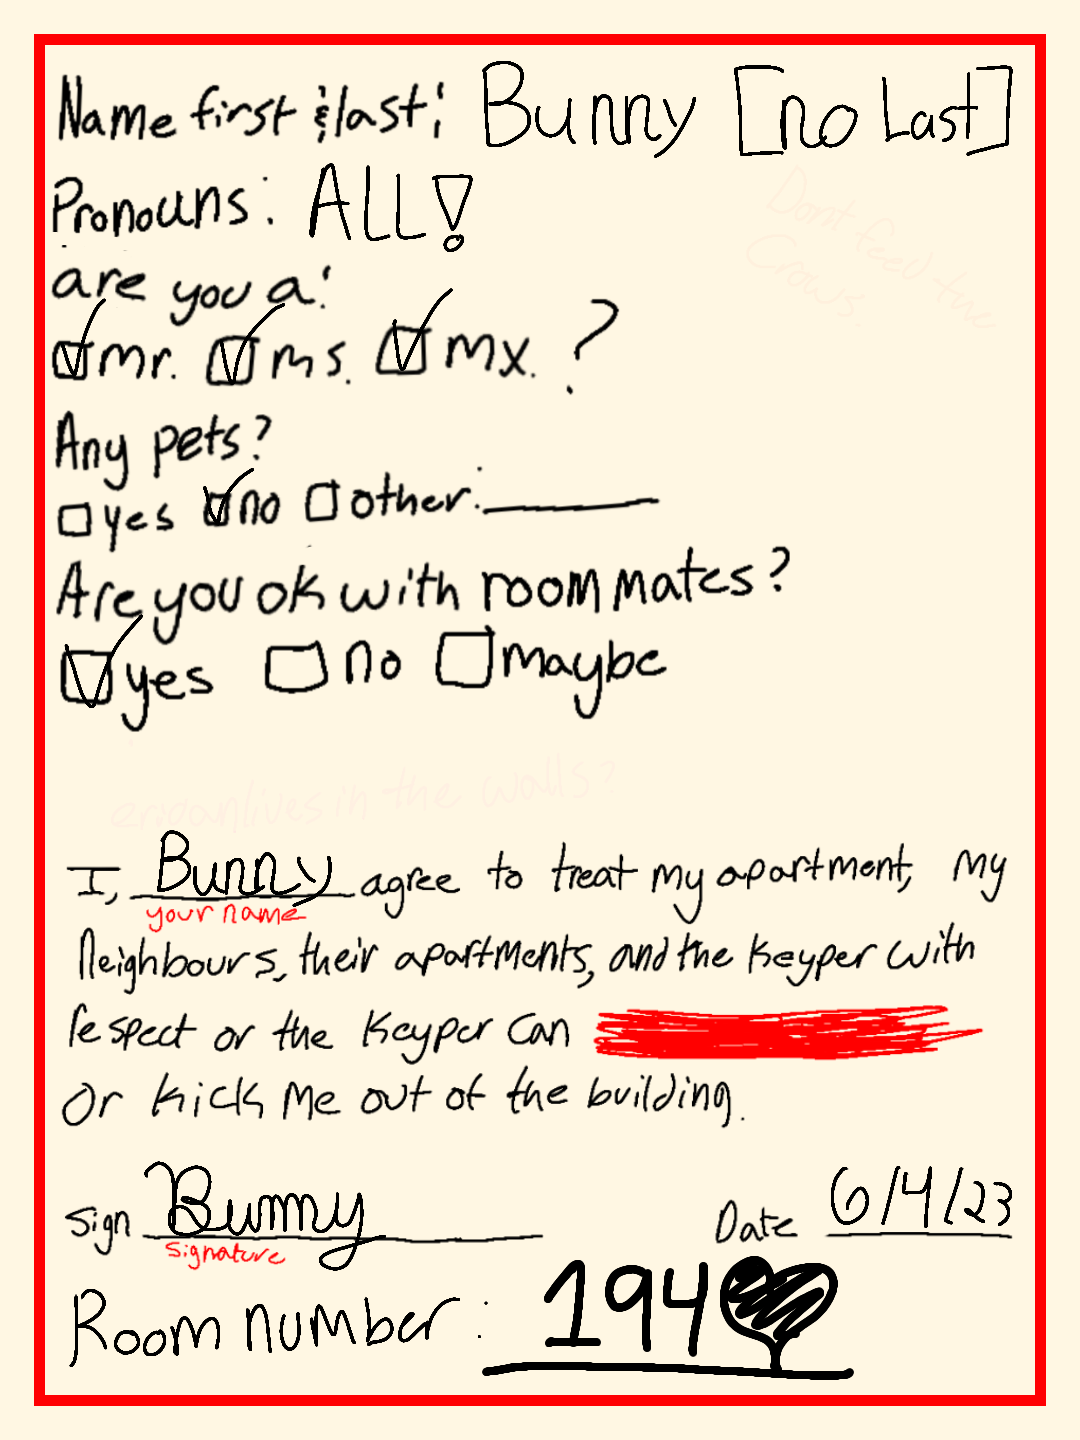 Name first & last: Bunny [no Last]
Pronouns: ALL!
Dont feed the
Crows.
are you a:
mr. ms. mx. ?
Any pets?
yes no other:
Are you ok with roommates?
yes no maybe
lives in the walls?
I, Bunny agree to treat my apartment, my
your name
Neighbours, their apartments, and the Keyper with
respect or the Keyper Can
Or Kick Me out of the building.
Sign Bunny Date 6/4/23
Signature
Room number: 194